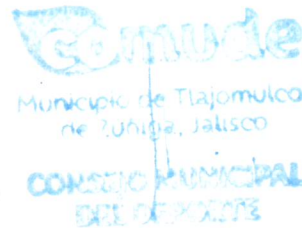 comude
Municipio de Tlajomulco
de Zuñiga, Jalisco
CONSEJO MUNICIPAL
DEL DEPORTE